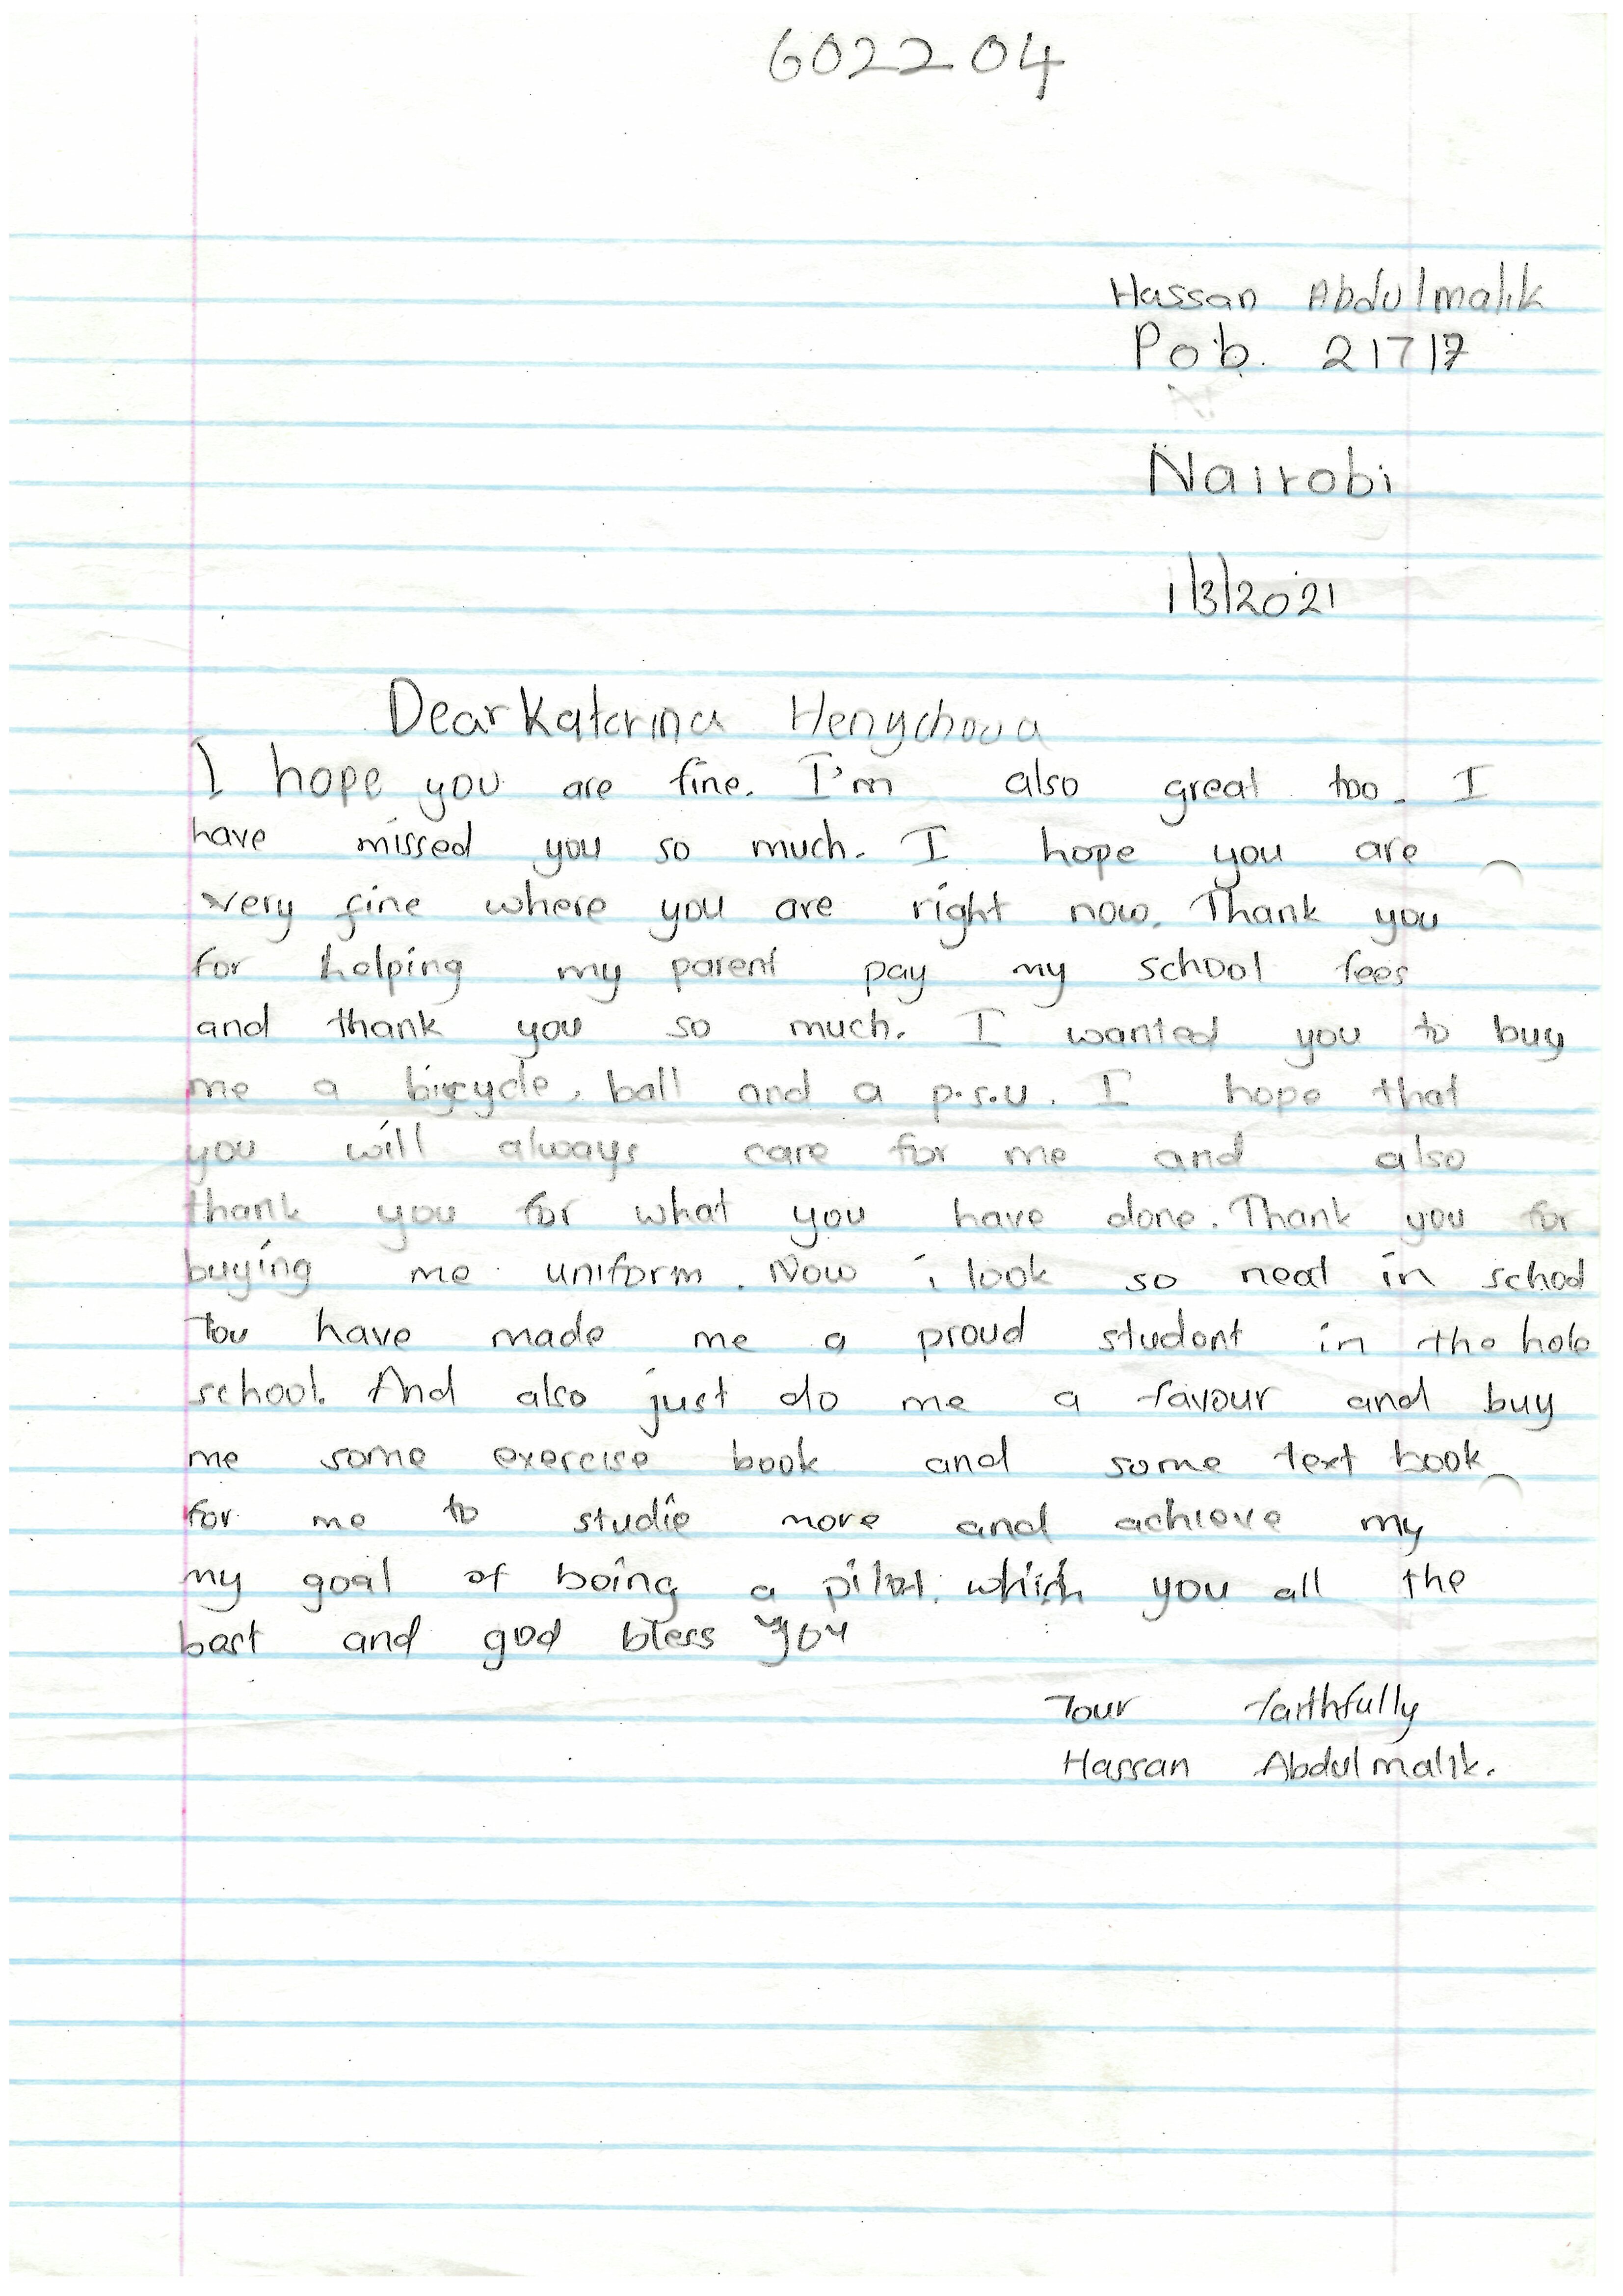 602204
Hassan Abdulmalik
Pob. 21717
Nairobi
1/3/2021
Dear Katerina Hengchova
I hope you are fine. I'm also great too. I
have missed you so much. I hope you are
very fine where you are right now. Thank you
for helping my parent pay my school fees
and thank you so much. I wanted you to buy
me a bicycle, ball and a p.s.u. I hope that
you will always care for me and also
thank you for what you have done. Thank you for
buying me uniform. Now i look so neat in school
You have made me a proud student in the hole
school. And also just do me a favour and buy
me some exercise book and some text book
for me to studie more and achieve my
my goal of being a pilot. which you all the
best and god bless you
Your faithfully
Hassan Abdulmalik.